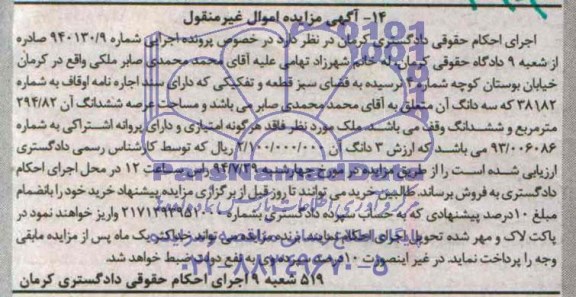 ۱۴- آگهی مزایده اموال غیرمنقول
اجرای احکام حقوقی دادگستری کرمان در نظر دارد در خصوص پرونده اجرایی شماره ۹۴۰۱۳۰/۹ صادره
از شعبه ۹ دادگاه حقوقی کرمان له خانم شهرزاد تهامی علیه آقای محمد محمدی صابر ملکی واقع در کرمان
خیابان بوستان کوچه شماره ۴ نرسیده به فضای سبز قطعه و تفکیکی که دارای سند اجاره نامه اوقاف به شماره
۳۸۱۸۲ که سه دانگ آن متعلق به آقای محمد محمدی صابر می باشد و مساحت عرصه ششدانگ آن ۲۹۴/۸۲
مترمربع و ششدانگ وقف می باشد. ملک مورد نظر فاقد هرگونه امتیازی و دارای پروانه اشتراکی به شماره
۹۳/۰۰۶۰۸۶ می باشد که ارزش ۳ دانگ آن ۲/۱۰۰/۰۰۰/۰۰۰ ریال که توسط کارشناس رسمی دادگستری
ارزیابی شده است را از طریق مزایده در مورخ چهارشنبه ۹۴/۷/۲۹ راس ساعت ۱۲ در محل اجرای احکام
دادگستری به فروش برساند. طالبین خرید می توانند تا روز قبل از برگزاری مزایده پیشنهاد خرید خود را بانضمام
مبلغ ۱۰درصد پیشنهادی که به حساب سپرده دادگستری بشماره واریز خواهند نمود در
پاکت لاک و مهر شده تحویل اجرای احکام نمایند برنده مزایده می تواند حداکثر یک ماه پس از مزایده مابقی
وجه را پرداخت نماید. در غیر اینصورت ۱۰درصد سپرده وی به نفع دولت ضبط خواهد شد.
۵۱۹ شعبه ۹ اجرای احکام حقوقی دادگستری کرمان
۰۲۱-۸۸۳۴۹۶۷۰-۵